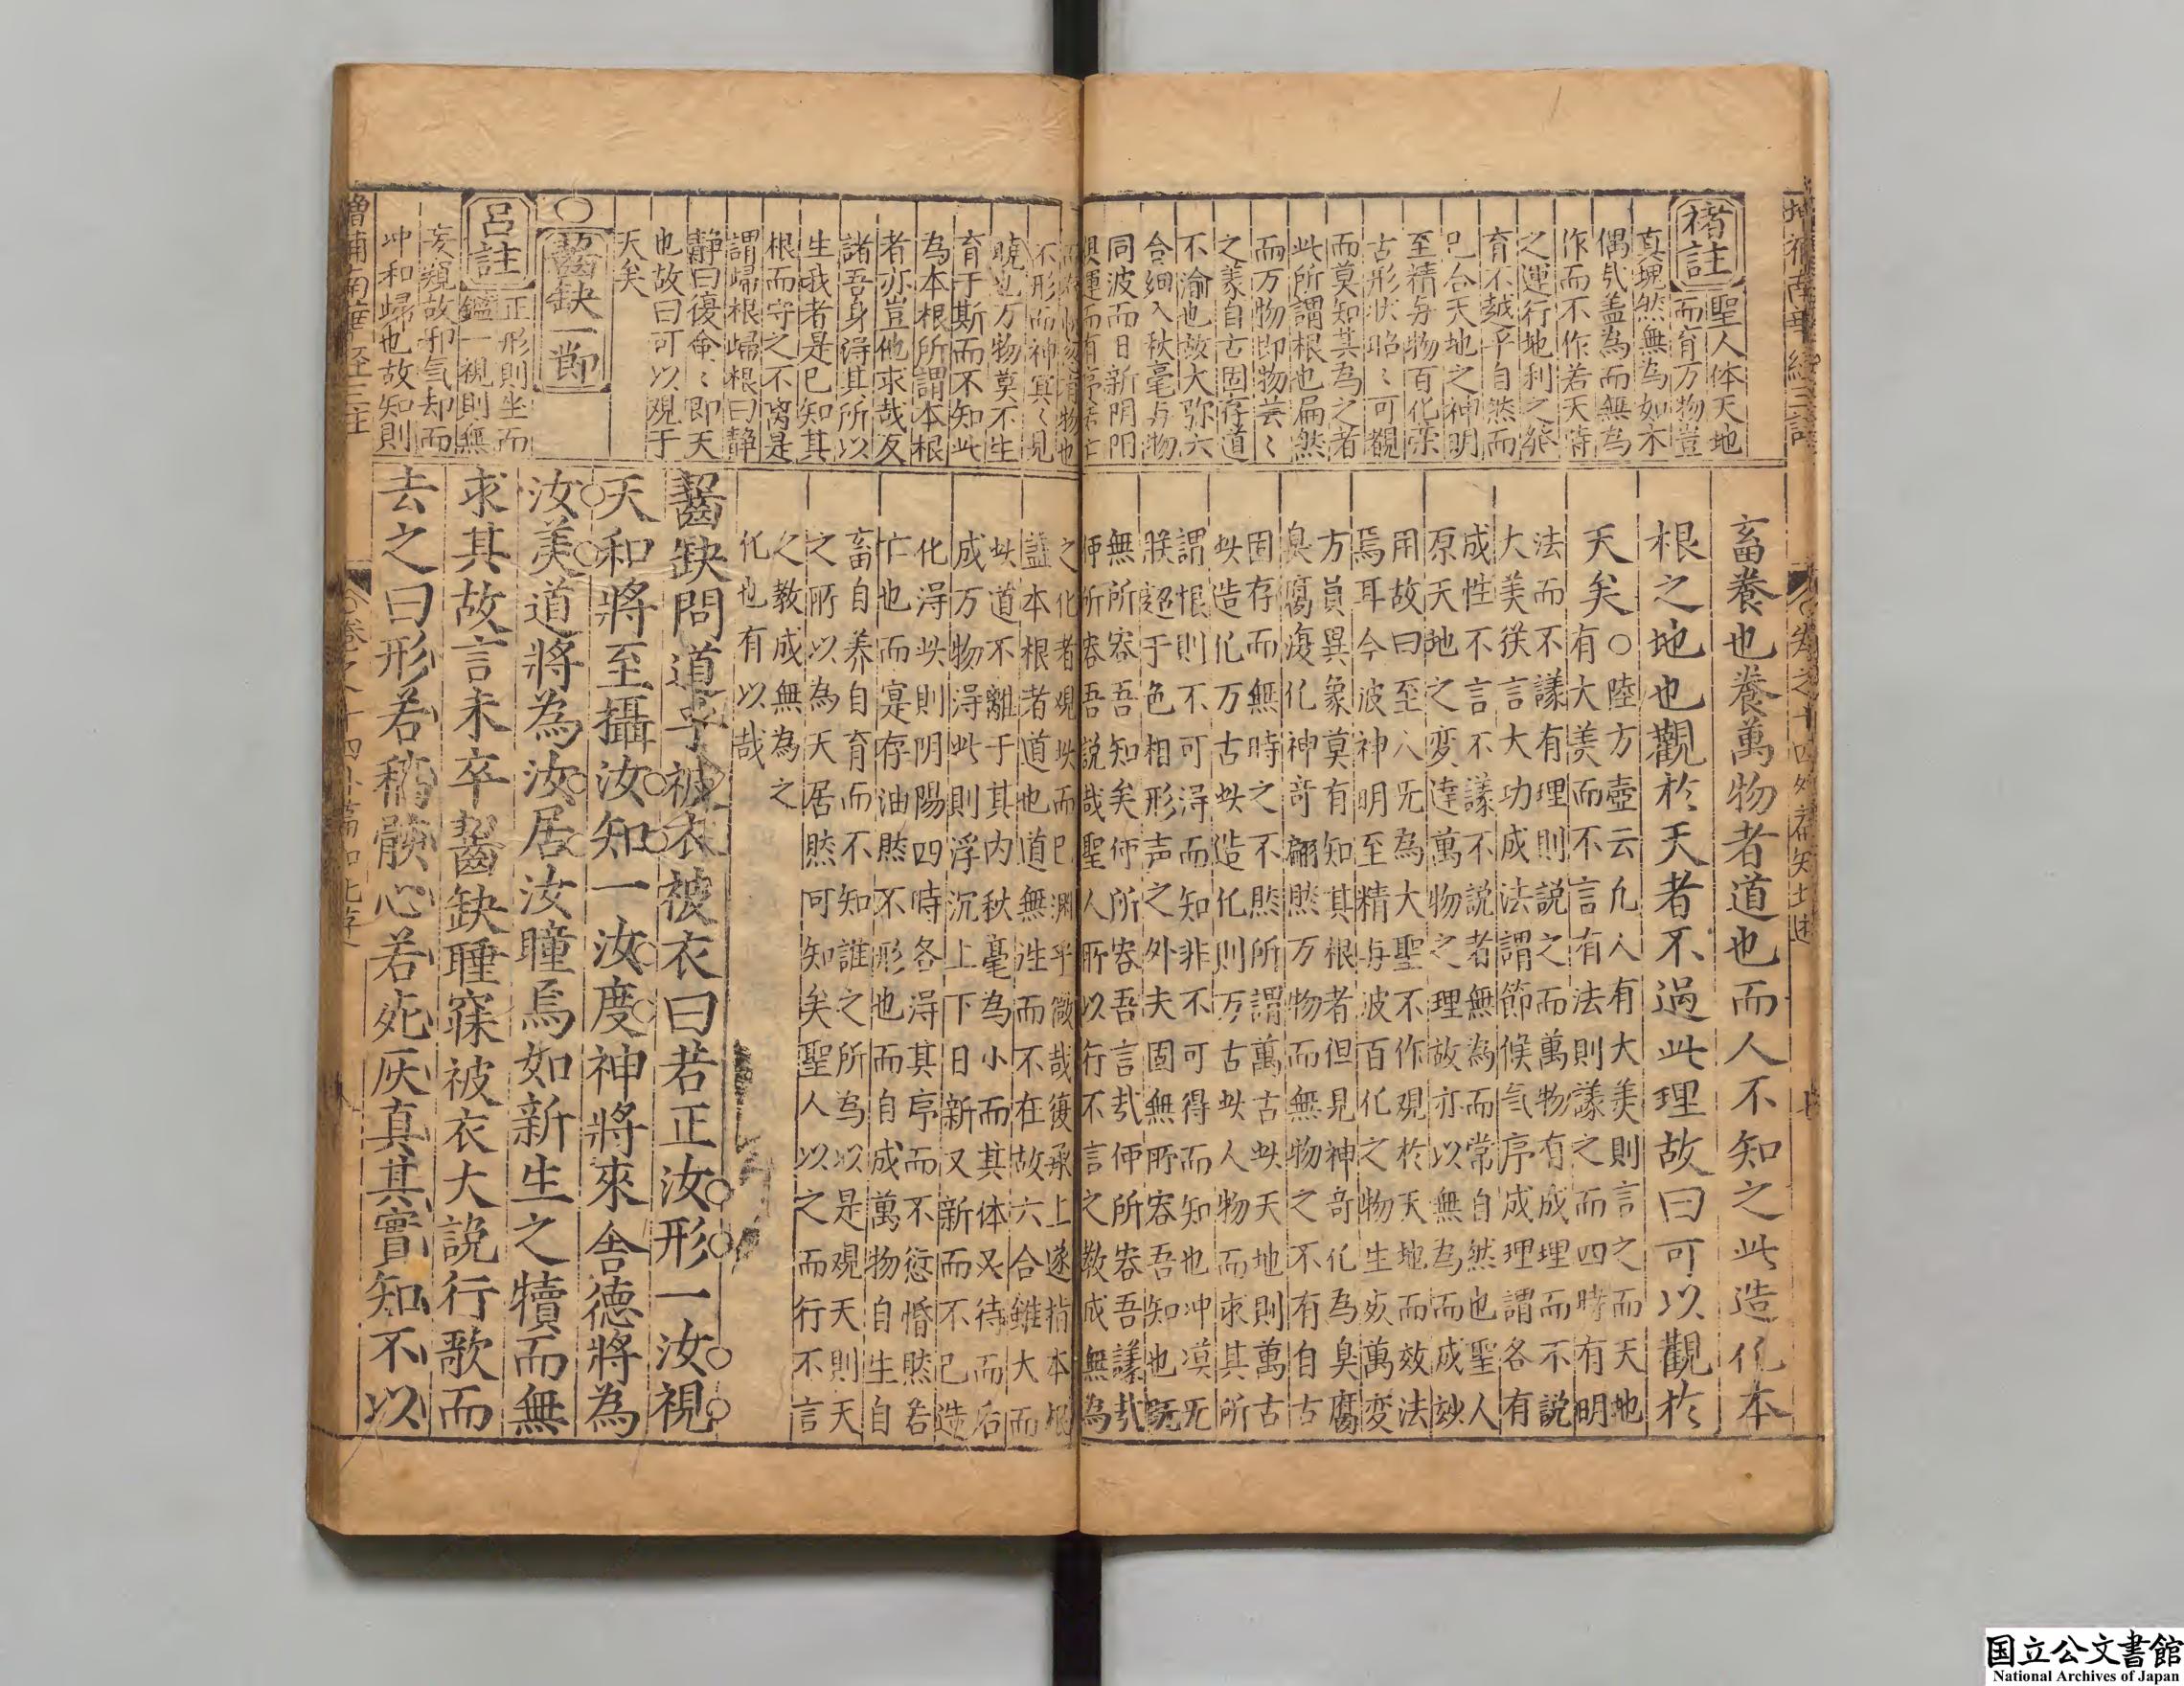 褚註
聖人体天地
而育万物豈
真塊然無為如木
偶㢤盖為而無為
作而不作若天時
之運行地利之發
育不越乎自然而
已合天地之神明
至精与物百化栾
古形状昭〻可覩
而莫知其為之者
此所謂根也扁然
而万物即物芸〻
之義自古固存道
不渝也故大弥六
合細入秋毫与物
同波而日新阴阳
畜養也養萬物者道也而人不知之此造化本
根之地也觀於天者不過此理故曰可以觀於
天矣○陸方壺云凢人有大美則言之而天地
有大美而不言有法則議之而四時有明
法而不議有理則説之而萬物有成理而不説
大美從言大功成法謂節候气序成理謂各有
成性不言不議不説者無為而常自然也聖人
原天地之変達萬物之理故亦以無為而成妙
用故曰至人旡為大聖不作观於天地而效法
焉耳今彼神明至精与彼百化之物生夾萬変
方員異象莫有知其根者但見神竒化為臭腐
臭腐復化神竒翩然万物而無物之不有自古
固存而無時之不然所謂萬古此天地則萬古
此造化万古此造化則万古此人物而求其所
謂根則不可得而知非不可得而知也冲漠旡
朕超于色相形声之外夫固無所容吾知也旣
無所容吾知矣何所容吾言㢤何所容吾議㢤
何所容吾説哉聖人所以行不言之教成無為
不形而神冥〻見
曉也万物莫不生
育于斯而不知此
為本根所謂本根
者亦豈他求哉反
諸吾身淂其所以
生我者是已知其
根而守之不离是
謂歸根歸根曰静
靜曰復命〻即天
也故曰可以观于
天矣
○
齧缺一節
呂註
正形則坐而
鑑一視則無
妄覬故邪气却而
冲和歸也故知則
之化者观此而已淵乎微哉復承上遂指本根
盖本根者道也道無往而不在故六合雖大而
此道不離于其内秋毫為小而其体又待而后
成万物淂此則浮沉上下日新又新而不已造
化淂此則阴陽四時各淂其序而不愆惛然若
亡也而寔存油然不形也而自成萬物自生自
畜自养自育而不知誰之所為以是观天則天
之所以為天居然可知矣聖人以之而行不言
之教成無為之
化也有以哉
齧缺問道乎被衣被衣曰若正汝形一汝視
天和將至攝汝知一汝度神將來舍德將為
汝美道將為汝居汝瞳焉如新生之犢而無
求其故言未卒齧缺睡寐被衣大説行歌而
去之曰形若槁骸心若死灰真其實知不以
国立公文書館
National Archives of Japan